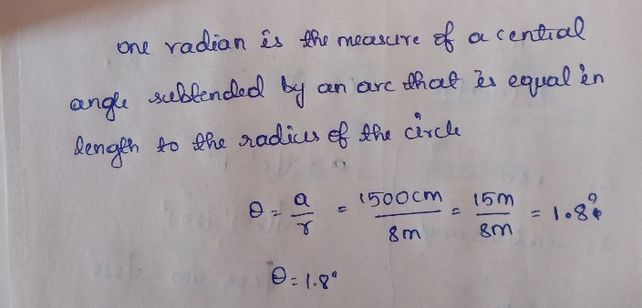 one radian is the measure of a central
angle subtended by an arc that is equal in
length to the radius of the circle
θ = a/r = 1500cm/8m = 15m/8m = 1.8°
θ = 1.8°